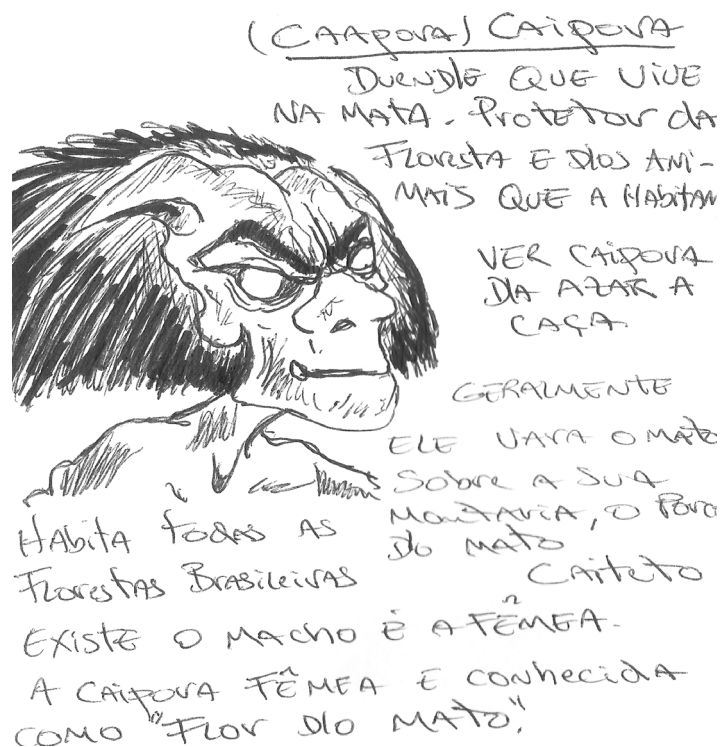 (CAAPORA) CAIPORA
DUENDE QUE VIVE
NA MATA. PROTETOR DA
FLORESTA E DOS ANI-
MAIS QUE A HABITAM
VER CAIPORA
DA AZAR A
CAÇA.
GERALMENTE
ELE VARA O MATO
SOBRE A SUA
MONTARIA, O PORCO
DO MATO
CAITETO
HABITA TODAS AS
FLORESTAS BRASILEIRAS
EXISTE O MACHO E A FÊMEA.
A CAIPORA FÊMEA E CONHECIDA
COMO "FLOR DO MATO".